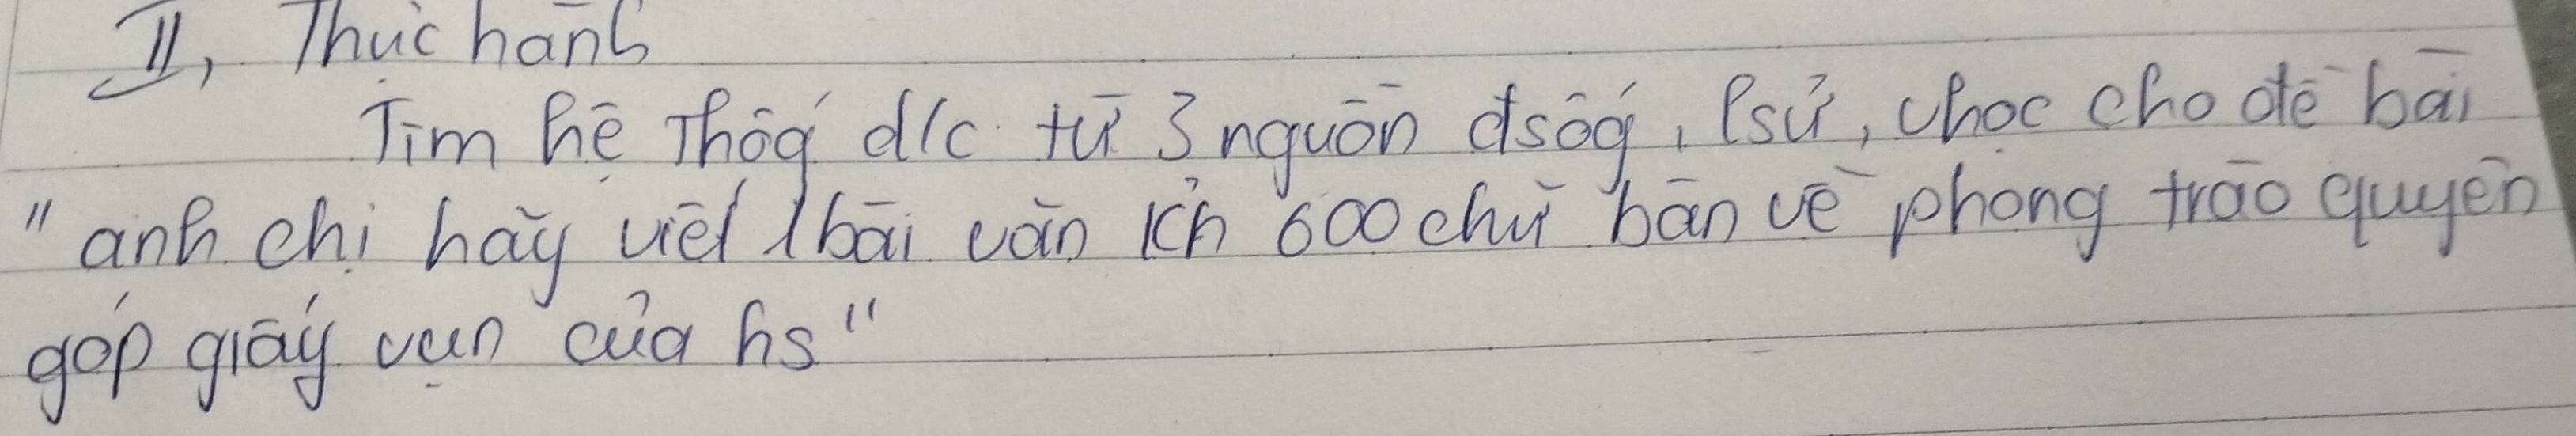 II, Thực hành
Tìm hệ thốg d/c từ 3 nguồn đsốg, lsử, vhọc cho đề bài
"anh chị hãy viết 1 bài văn kh 600 chữ bàn về phong trào quyên
góp giấy vụn của hs"